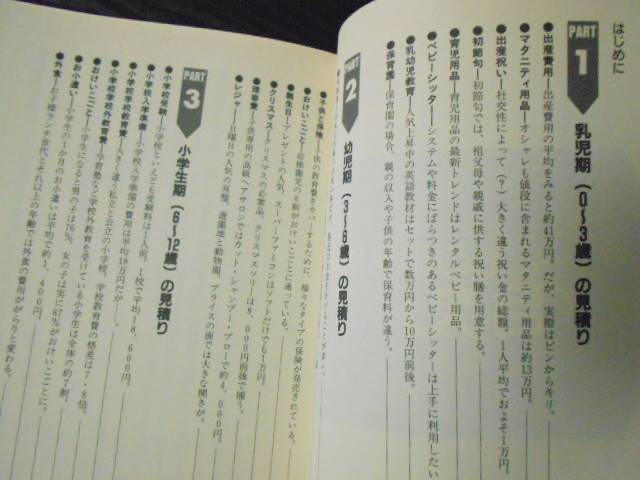 はじめに
PART 1 乳児期（0〜3歳）の見積り
●出産費用―出産費用の平均をみると約41万円。だが、実際はピンからキリ。
●マタニティ用品―オシャレも値段に含まれるマタニティ用品は約13万円。
●出産祝い―社交性によって（?）大きく違う祝い金の総額。1人平均でおよそ1万円。
●初節句―初節句では、祖父母や親戚に供する祝い膳を用意する。
●育児用品―育児用品の最新トレンドはレンタルベビー用品。
●ベビーシッター―システムや料金にばらつきのあるベビーシッターは上手に利用したい
●乳幼児教育―人気上昇中の英語教材はセットで数万円から10万円前後。
●保育園―保育園の場合、親の収入や子供の年齢で保育料が違う。
PART 2 幼児期（3〜6歳）の見積り
●子供と保険―子供の教育費をカバーするために、様々なタイプの保険が発売されている。
●おけいこごと―幼稚園児の6割がおけいこごとに通っている。
●誕生日―プレゼントの人気、スーパーファミコンはソフトだけでも1万円。
●クリスマス―クリスマスの必需品、クリスマスツリーは8、000円前後で買う。
●理容費―子供専用の高級ヘアサロンではカット・シャンプー・ブローで約4、000円。
●レジャー―日曜日の人気の双璧、遊園地と動物園、プライスの面では大きな開きが。
PART 3 小学生期（6〜12歳）の見積り
●小学校受験―小学校といえども受験料は1人前。1校で平均18、600円。
●小学校入学準備―小学校入学準備の費用は平均18万円だが……。
●小学校学校教育費―大きく違う私立と公立の小学校。学校教育費の格差は7・8倍。
●小学校学校外教育費―学習塾など学校外教育を受けている小学生は全体の約7割。
●おけいこごと―小学生になると男の子は76%、女の子は実に87%がおけいこごとに。
●お小遣い―小学生の1カ月のお小遣いは平均で約1、400円。
●外食―お子様ランチ世代とそれ以上の年齢では外食の費用ががらりと変わる。